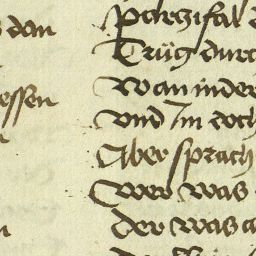 dan
essen
Parzifal
Trüg durc
Wan in der
Vnd Im doch
Aber sprach
Wer was
der was